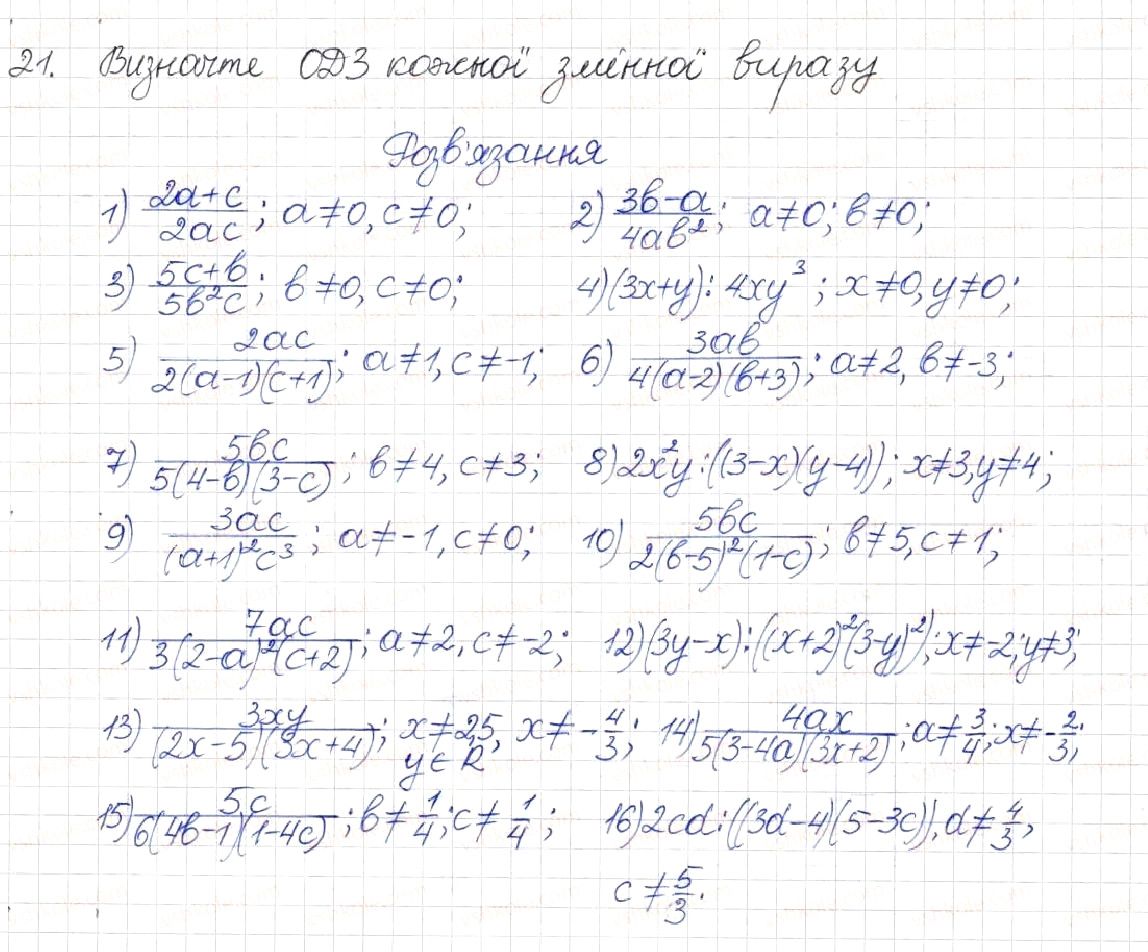 21. Визначте ОДЗ кожної змінної виразу
Розв'язання
1) (2a+c)/(2ac); a≠0, c≠0; 2) (3b-a)/(4ab²); a≠0; b≠0;
3) (5c+b)/(5b²c); b≠0, c≠0; 4) (3x+y): 4xy³; x≠0, y≠0;
5) 2ac/(2(a-1)(c+1)); a≠1, c≠-1; 6) 3ab/(4(a-2)(b+3)); a≠2, b≠-3;
7) 5bc/(5(4-b)(3-c)); b≠4, c≠3; 8) 2x²y:((3-x)(y-4)); x≠3, y≠4;
9) 3ac/((a+1)²c³); a≠-1, c≠0; 10) 5bc/(2(b-5)²(1-c)); b≠5, c≠1;
11) 7ac/(3(2-a)²(c+2)); a≠2, c≠-2; 12) (3y-x):((x+2)²(3-y)²); x≠-2; y≠3;
13) 3xy/((2x-5)(3x+4)); x≠2,5, x≠-4/3; 14) 4ax/(5(3-4a)(3x+2)); a≠3/4; x≠-2/3;
y∈R
15) 5c/(6(4b-1)(1-4c)); b≠1/4; c≠1/4; 16) 2cd:((3d-4)(5-3c)), d≠4/3,
c≠5/3.